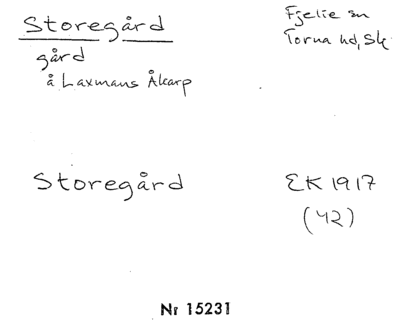 Storegård
Fjelie sn
Torna hd, Sk
gård
å Laxmans Åkarp
Storegård
EK 1917
(42)
Nr 15231